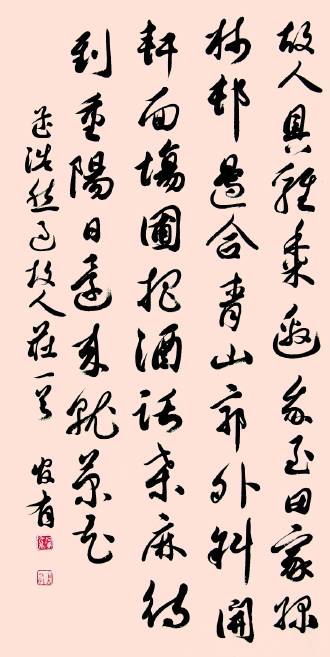 故人具雞黍邀我至田家綠
樹邨邊合青山郭外斜開
軒面場圃把酒話桑麻待
到重陽日還來就菊花
孟浩然过故人莊一首 有